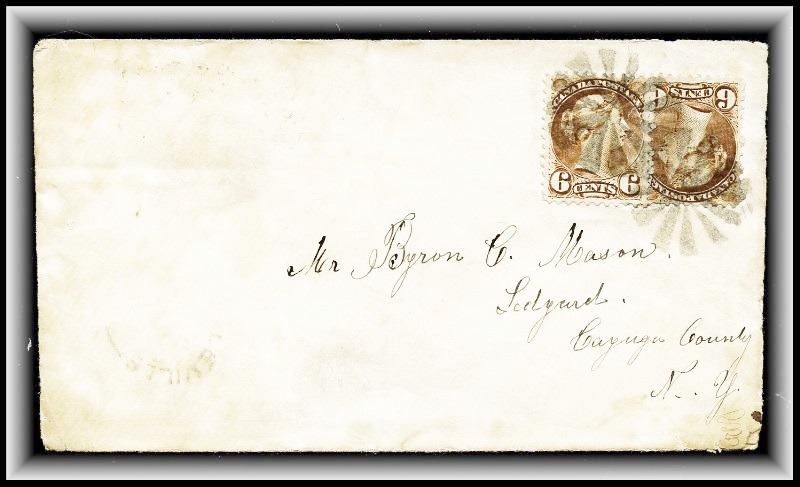 CANADA POSTAGE
6 CENTS 6
6 CENTS 6
CANADA POSTAGE
Mr Byron C. Mason.
Ledyard.
Cayuga County
N. Y.